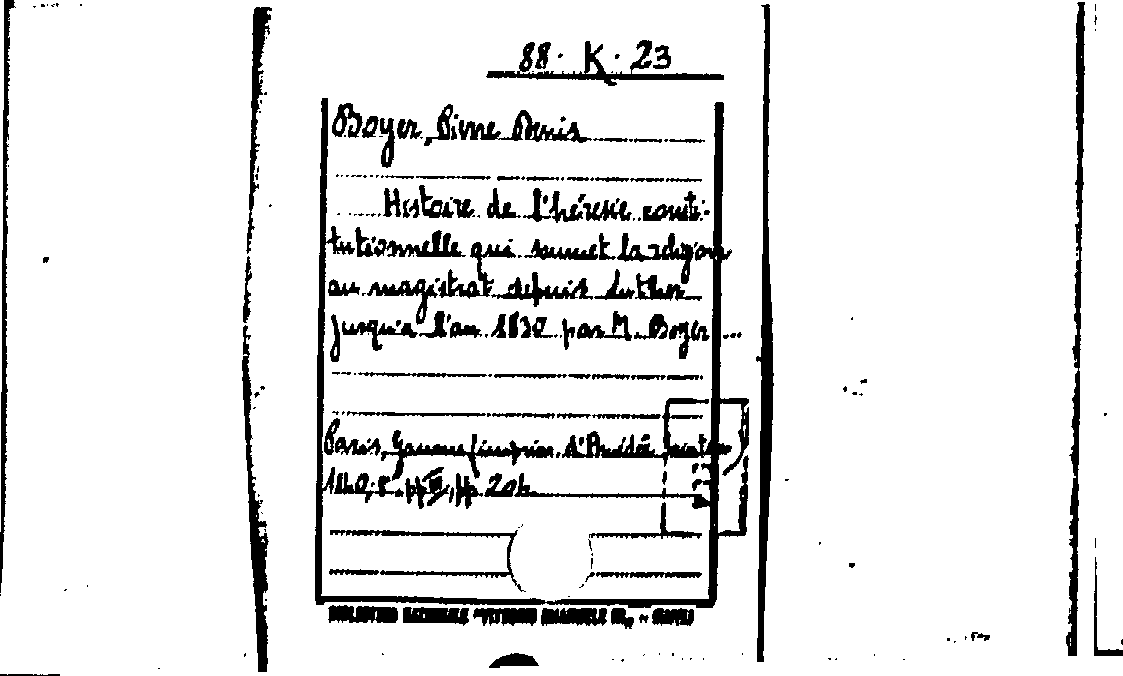 88. K. 23
Boyer, Pierre Denis
Histoire de l'hérésie consti-
tutionnelle qui soumet la religion
au magistrat depuis Luther
jusqu'a l'an 1830 par M. Boyer ...
Paris, Gaume (imprim. d'Amédée
8°. pp III, pp. 204
BIBLIOTECA NAZIONALE "VITTORIO EMANUELE III" - NAPOLI